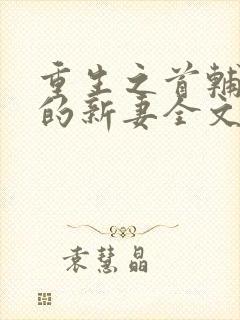 重生之首辅
的新妻全文
袁慧晶